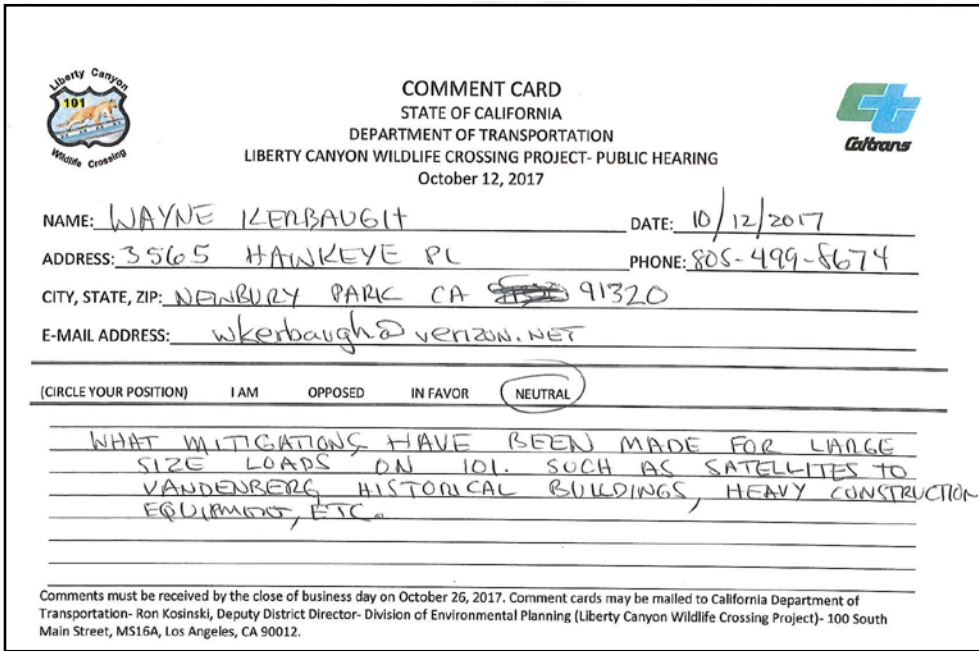 Liberty Canyon
101
Wildlife Crossing
COMMENT CARD
STATE OF CALIFORNIA
DEPARTMENT OF TRANSPORTATION
LIBERTY CANYON WILDLIFE CROSSING PROJECT- PUBLIC HEARING
October 12, 2017
ct
Caltrans
NAME: WAYNE KERBAUGH DATE: 10/12/2017
ADDRESS: 3565 HAWKEYE PL PHONE: 805-499-8674
CITY, STATE, ZIP: NEWBURY PARK CA 91320
E-MAIL ADDRESS: wkerbaugh@verizon.NET
(CIRCLE YOUR POSITION) I AM OPPOSED IN FAVOR NEUTRAL
WHAT MITIGATIONS HAVE BEEN MADE FOR LARGE
SIZE LOADS ON 101. SUCH AS SATELLITES TO
VANDENBERG HISTORICAL BUILDINGS, HEAVY CONSTRUCTION
EQUIPMENT, ETC.
Comments must be received by the close of business day on October 26, 2017. Comment cards may be mailed to California Department of
Transportation- Ron Kosinski, Deputy District Director- Division of Environmental Planning (Liberty Canyon Wildlife Crossing Project)- 100 South
Main Street, MS16A, Los Angeles, CA 90012.